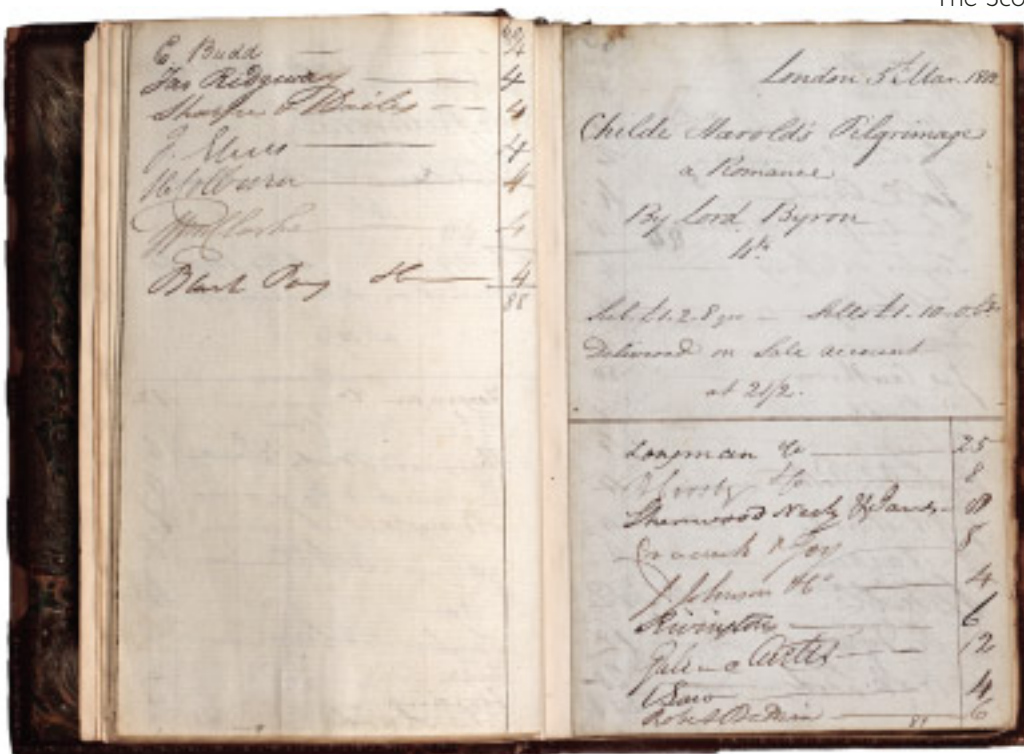 The Sco
E. Budd
Jas Ridgeway 4
Sharpe & Hailes 4
4
H Colburn 4
Wm Clarke 4
Black Parry & Co 4
88
London 5th Mar. 1812
Childe Harold's Pilgrimage
a Romance
By Lord Byron
4to
Sub. £1.2.8 Sells £1.10.0
Delivered on Sale account
at 21/2.
Longman & Co 25
8
Sherwood Neely & Jones
Cradock & Joy
J. Johnson & Co 4
Rivington 6
Gale & Curtis 12
4
Robt Baldwin 6